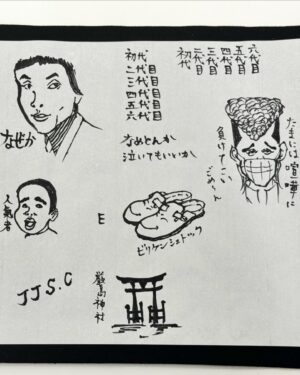 初代
二代目
三代目
四代目
五代目
六代目
初代
二代目
三代目
四代目
五代目
六代目
なぜか
なめとんか
泣いてもいいか
たまには喧嘩に
負けてこい
人気者
E
ビリケンシュトック
JJS.C
厳島神社